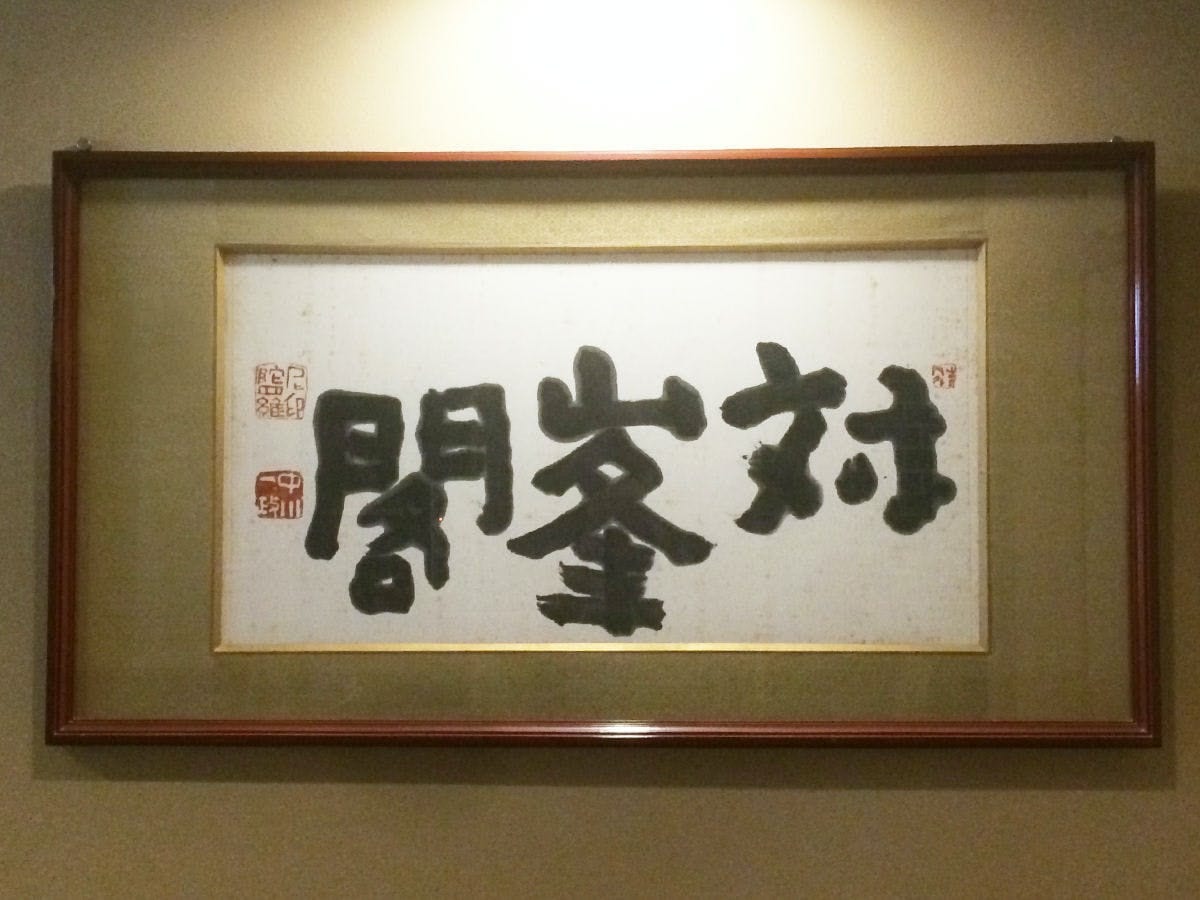 対峯閣
中川一政